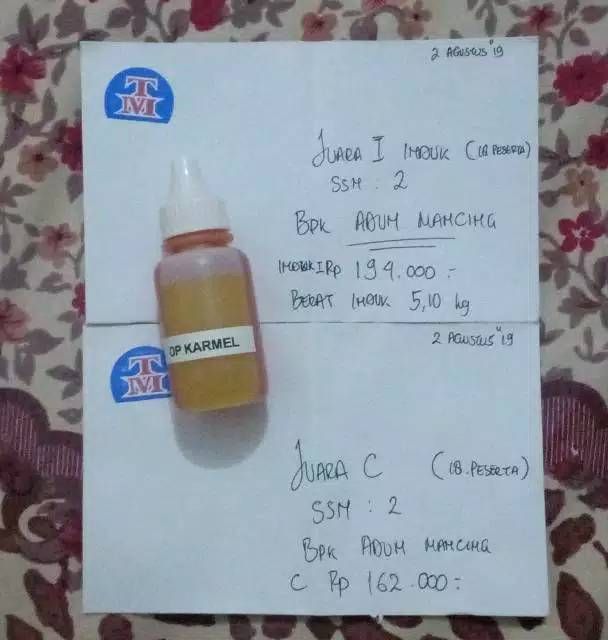 2 AGUSTUS "19
TM
JUARA I INDUK (18 PESERTA)
SSM : 2
BPK ADUM MANCING
INDUK I RP 194.000 =
BERAT INDUK 5,10 kg
OP KARMEL
2 AGUSTUS "19
TM
JUARA C (18.PESERTA)
SSM : 2
BPK ADUM MANCING
C RP 162.000 =